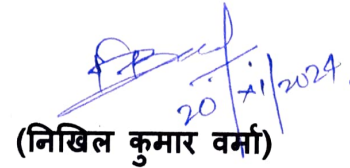 20/XI/2024
(निखिल कुमार वर्मा)